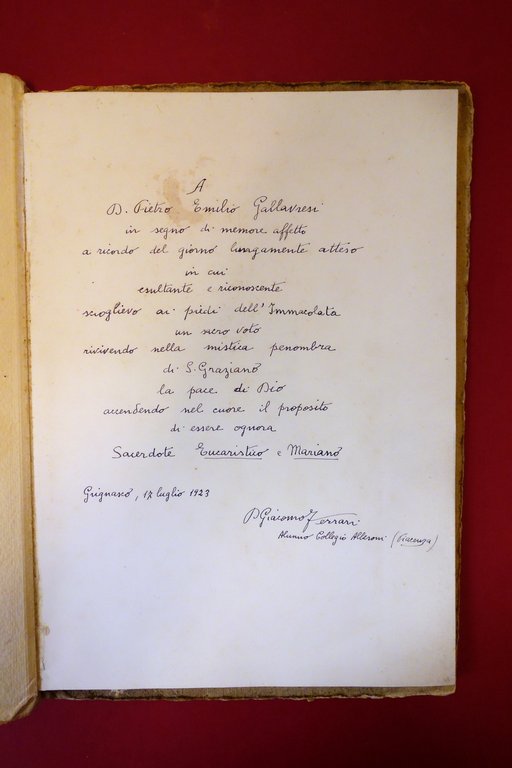 A
D. Pietro Emilio Gallavresi
in segno di memore affetto
a ricordo del giorno lungamente atteso
in cui
esultante e riconoscente
scioglievo ai piedi dell'Immacolata
un sacro voto
rivivendo nella mistica penombra
di S. Graziano
la pace di Dio
accendendo nel cuore il proposito
di essere ognora
Sacerdote Eucaristico e Mariano
Grignasco, 17 luglio 1923
D. Giacomo Ferrari
Alunno Collegio Alberoni (Piacenza)